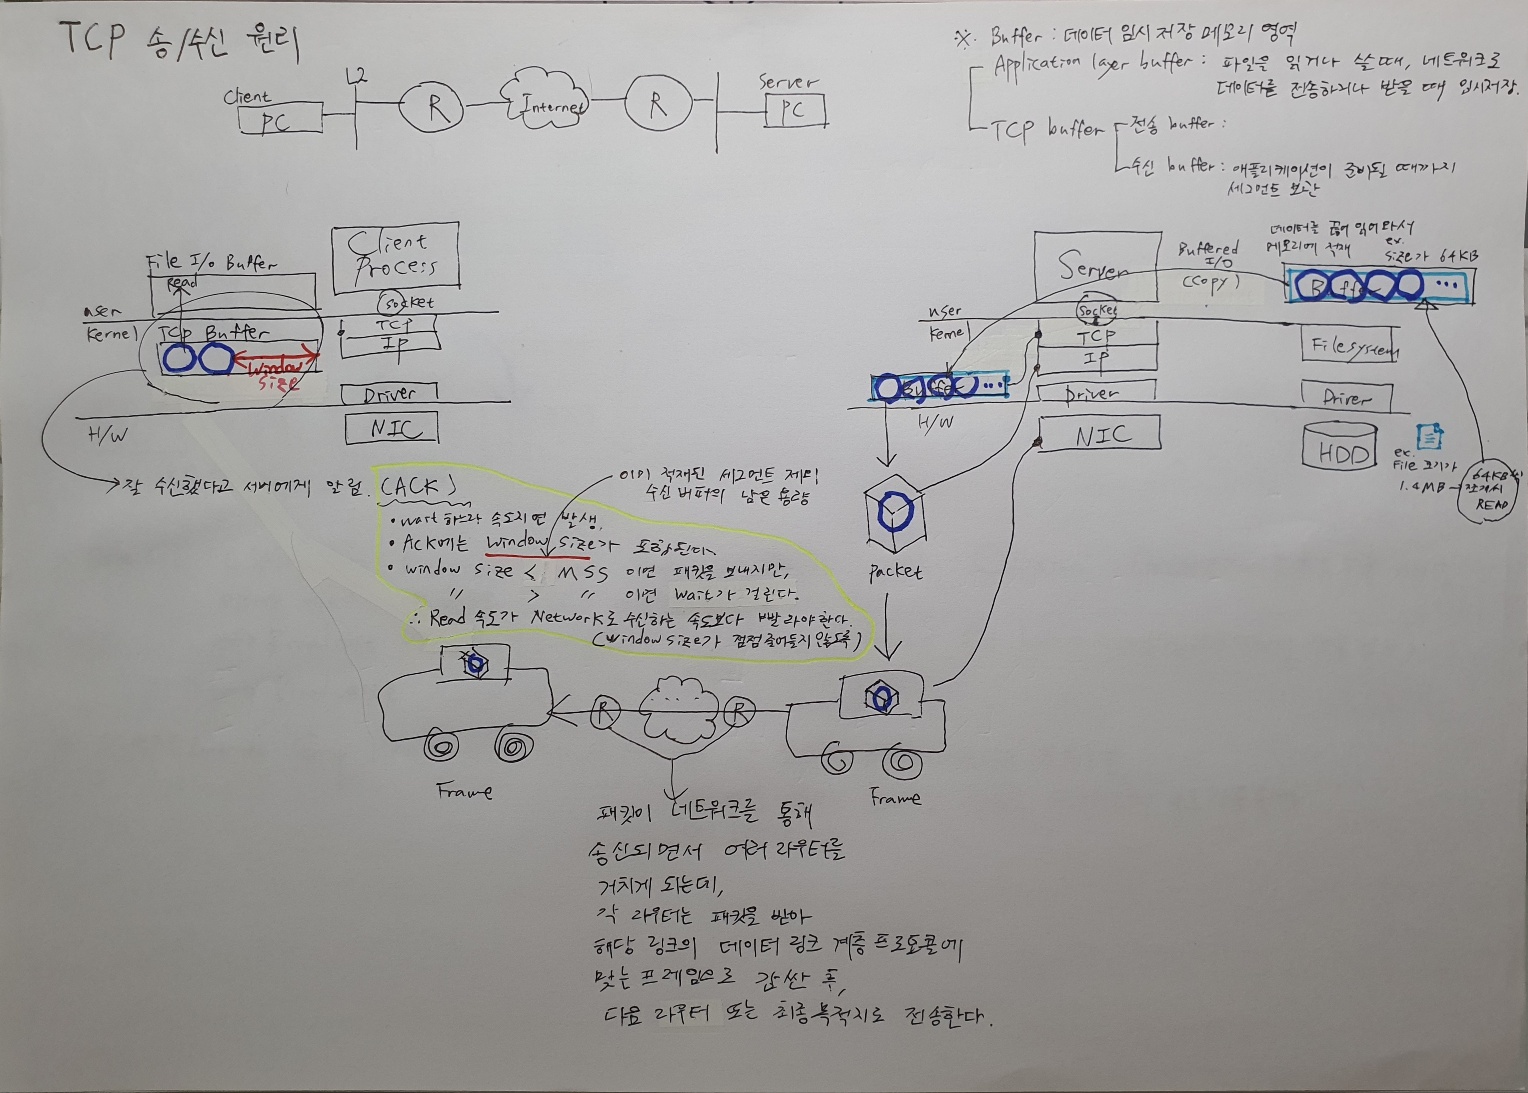 TCP 송/수신 원리
Client
PC
L2
R
Internet
R
Server
PC
※. Buffer : 데이터 임시 저장 메모리 영역
Application layer buffer : 파일을 읽거나 쓸 때, 네트워크로
데이터를 전송하거나 받을 때 임시저장.
TCP buffer
전송 buffer :
수신 buffer : 애플리케이션이 준비될 때까지
세그먼트 보관
File I/o Buffer
Read
user
Kernel
TCP Buffer
Window
Size
H/W
Client
Process
Socket
TCP
IP
Driver
NIC
Server
Socket
user
Kernel
TCP
IP
Buffer ...
Driver
H/W
NIC
Buffered
I/O
(Copy)
데이터를 끊어 읽어와서
메모리에 적재
ex.
Size가 64KB
Buffer ...
Filesystem
Driver
HDD
ex.
File 크기가
1.4MB
64KB씩
쪼개서
READ
잘 수신했다고 서버에게 알림. (ACK)
이미 적재된 세그먼트 제외
수신 버퍼의 남은 용량
• wait 하느라 속도지연 발생.
• Ack에는 Window Size가 포함된다.
• window size < MSS 이면 패킷을 보내지만,
〃 > 〃 이면 Wait가 걸린다.
∴ Read 속도가 Network로 수신하는 속도보다 빨라야 한다.
(Window size가 점점 줄어들지 않도록)
Packet
R
R
Frame
Frame
패킷이 네트워크를 통해
송신되면서 여러 라우터를
거치게 되는데,
각 라우터는 패킷을 받아
해당 링크의 데이터 링크 계층 프로토콜에
맞는 프레임으로 감싼 후,
다음 라우터 또는 최종목적지로 전송한다.